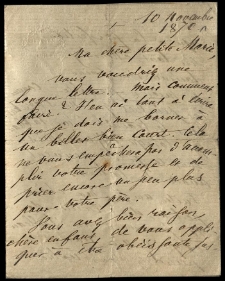 + 10 Novembre
187
Ma chère petite Marie,
vous voudriez une
longue lettre. Mais comment
faire? J'en ai tant à écrire
que je dois me borner à
un billet bien court. Cela
ne vous empêchera pas d'accom-
plir votre promesse et de
prier encore un peu plus
pour votre père.
Vous avez bien raison,
chère enfant, de vous appli-
quer à être obéissante